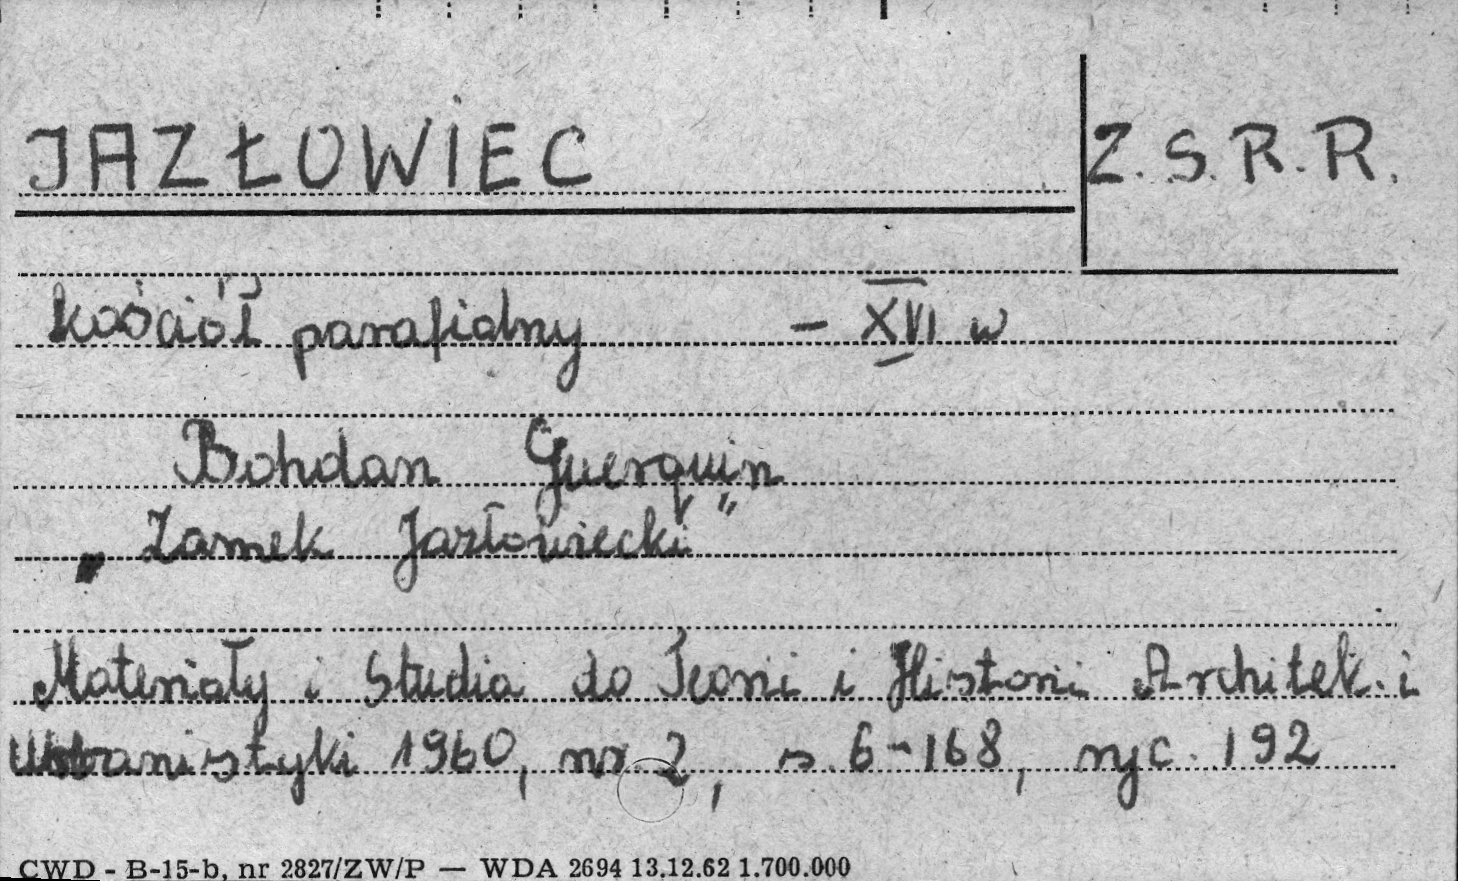 JAZŁOWIEC
Z.S.R.R.
kościół parafialny – XVI w
Bohdan Guerquin
„Zamek Jazłowiecki"
Materiały i Studia do Teorii i Historii Architek. i
Urbanistyki 1960, nr. 2, s. 6-168, ryc. 192
CWD - B-15-b, nr 2827/ZW/P — WDA 2694 13.12.62 1.700.000